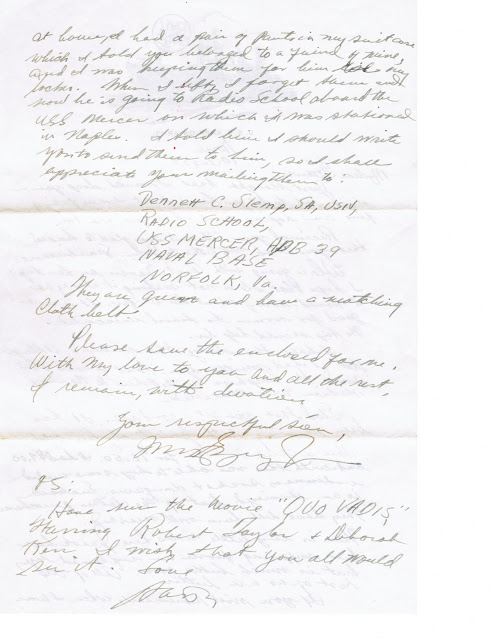 at home, I had a pair of pants in my suit case
which I told you belonged to a friend of mine,
and I was keeping them for him in my
locker. When I left, I forgot them and
now he is going to Radio School aboard the
USS Mercer on which I was stationed
in Naples. I told him I should write
you to send them to him, so I shall
appreciate your mailing them to:
Dennett C. Slemp, SA, USN,
RADIO SCHOOL,
USS MERCER, APB 39
NAVAL BASE
NORFOLK, Va.
They are green and have a matching
cloth belt.
Please save the enclosed for me.
With my love to you and all the rest,
I remain, with devotion
Your respectful son,
PS:
Have seen the movie "QUO VADIS,"
starring Robert Taylor & Deborah
Kerr. I wish that you all would
see it. Love